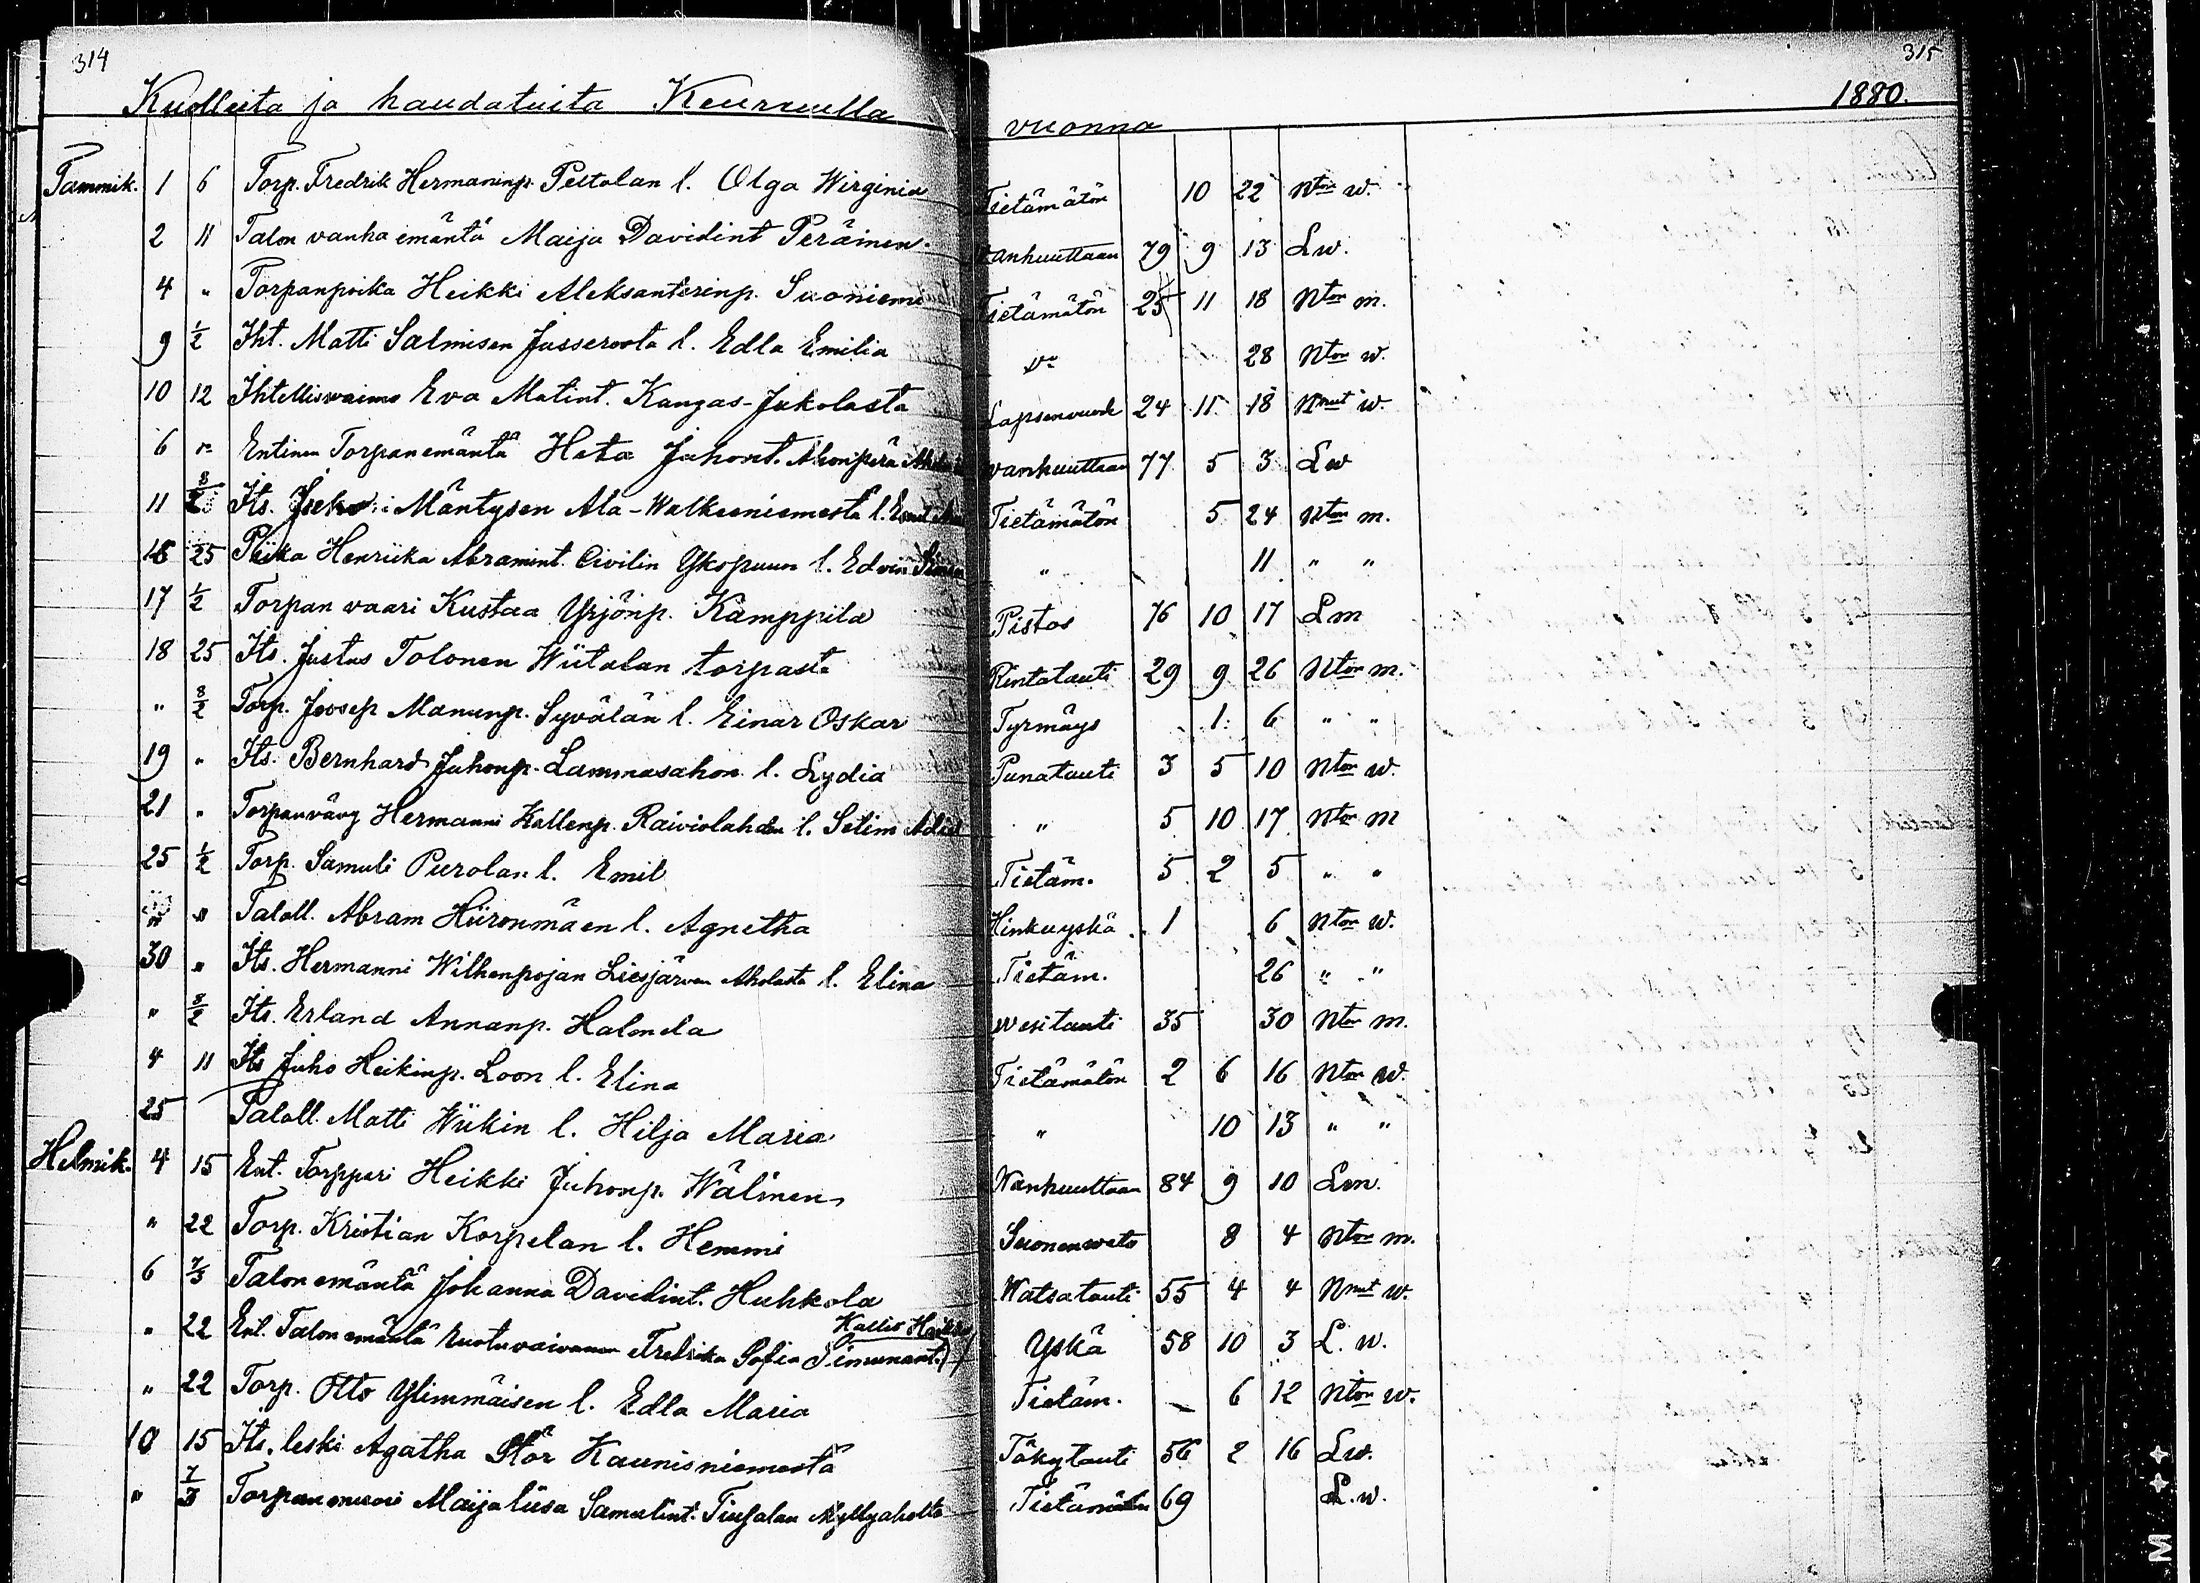 314
315
Kuolleita ja haudatuita Keuruulla vuonna 1880.
Tammik. 1 6 Torp. Fredrik Hermaninp. Peltolan l. Olga Wirginia Tietämätön 10 22 Ntön w.
2 11 Talon vanha emäntä Maija Davidint Peräinen. vanhuuttaan 79 9 13 Lw.
4 " Torpanpoika Heikki Aleksanterinp. Suoniemi Tietämätön 25 11 18 Ntön m.
9 1/2 Iht. Matti Salmisen Jusseroota l. Edla Emilia 28 Ntön w.
10 12 Ihtellisvaimo Eva Matint. Kangas-Jukolasta Lapsenvuode 24 11 18 Nnut w.
6 Entinen Torpanemäntä Heta Juhont. vanhuuttaan 77 5 3 Lw
11 8/2 Its. Mäntysen Ala-Walkeeniemestä l. Tietämätön 5 24 Ntön m.
15 25 Piika Henriika Abramint. Civilin Ykspuun l. Edvin " 11 " "
17 1/2 Torpan vaari Kustaa Yrjönp. Kämppilä Pistos 76 10 17 Lm
18 25 Its. Justus Tolonen Wiitalan torpasta Rintatauti 29 9 26 Ntön m.
" 8/2 Torp. Joosep Manunp. Syvälän l. Einar Oskar Tyrmäys 1 6 " "
19 " Its. Bernhard Juhonp. Lammasahon l. Lydia Punatauti 3 5 10 Ntön w.
21 " Torpanvävy Hermanni Kallenp. Raiviolahden l. Selim " 5 10 17 Ntön m
25 1/2 Torp. Samuli Purolan l. Emil Tietäm. 5 2 5 " "
" " Taloll. Abram Hiironmäen l. Agnetha Hinkuyskä 1 6 Ntön w.
30 " Its. Hermanni Wilhenpojan Liesjärven Aholasta l. Elina Tietäm. 26 " "
" 8/2 Its. Erland Annanp. Halonela wesitauti 35 30 Ntön m.
4 11 Its Juho Heikinp. Loon l. Elina Tietämätön 2 6 16 Ntön w.
25 Taloll. Matti Wiikin l. Hilja Maria " 10 13 " "
Helmik. 4 15 Ent. Torppari Heikki Juhonp. Wälinen Wanhuuttaan 84 9 10 Lm.
" 22 Torp. Kristian Korpelan l. Hemmi Suonenweto 8 4 Ntön m.
6 7/3 Talon emäntä Johanna Davidint. Huhkola Watsatauti 55 4 4 Nnut w.
" 22 Ent. Talon emäntä Ruotuvaivanen Fredrika Sofia Simunant. Yskä 58 10 3 L. w.
" 22 Torp. Otto Ylimmäisen l. Edla Maria Tietäm. 6 12 Ntön w.
10 15 Its. leski Agatha Stör Kaunisniemestä Täkytauti 56 2 16 Lw.
" 7/3 Torpanmuori Maijaliisa Samulint. Tiusalan Myllyaholta Tietämätön 69 L. w.
M